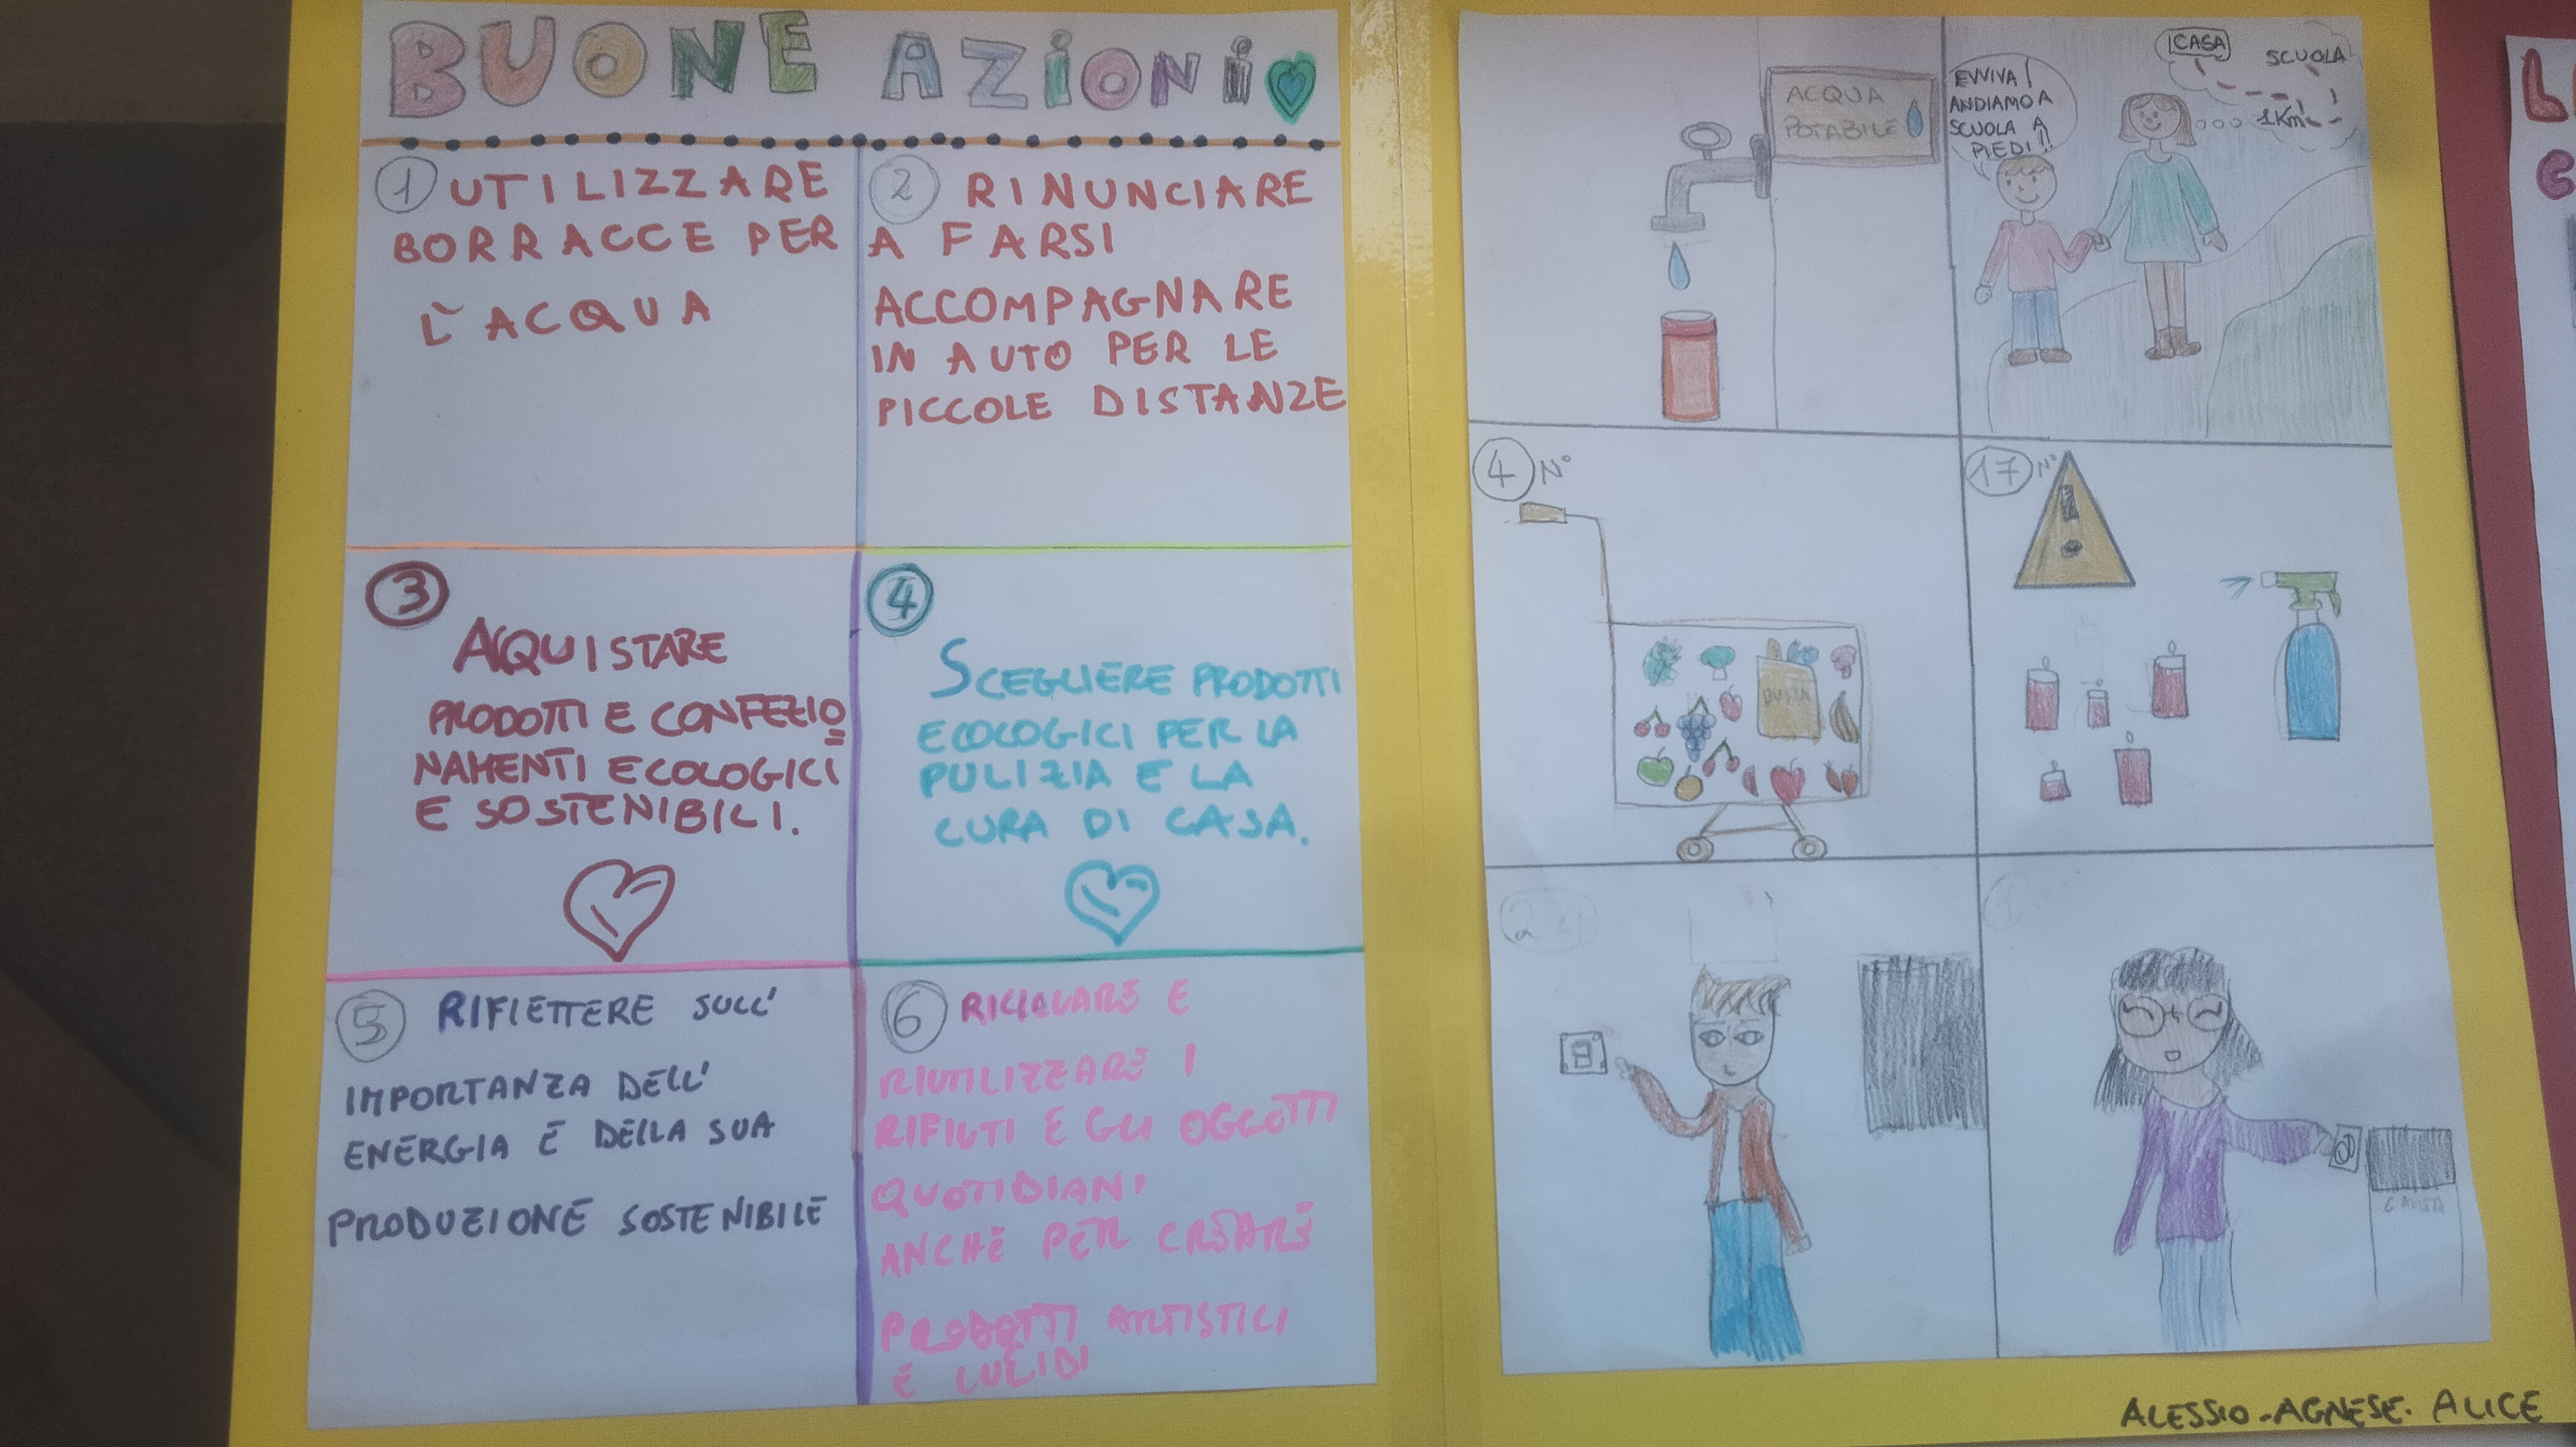 BUONE AZIONI
1 UTILIZZARE
BORRACCE PER
L'ACQUA
2 RINUNCIARE
A FARSI
ACCOMPAGNARE
IN AUTO PER LE
PICCOLE DISTANZE
3
ACQUISTARE
PRODOTTI E CONFEZIO
NAMENTI ECOLOGICI
E SOSTENIBILI.
4
SCEGLIERE PRODOTTI
ECOLOGICI PER LA
PULIZIA E LA
CURA DI CASA.
5 RIFLETTERE SULL'
IMPORTANZA DELL'
ENERGIA E DELLA SUA
PRODUZIONE SOSTENIBILE
6 RICICLARE E
RIUTILIZZARE I
RIFIUTI E GLI OGGETTI
QUOTIDIANI
ANCHE PER CREARE
PRODOTTI ARTISTICI
E
ACQUA
POTABILE
EVVIVA!
ANDIAMO A
SCUOLA A
PIEDI!!
CASA
SCUOLA
1Km
4 N°
17 N°
ALESSIO-AGNESE. ALICE